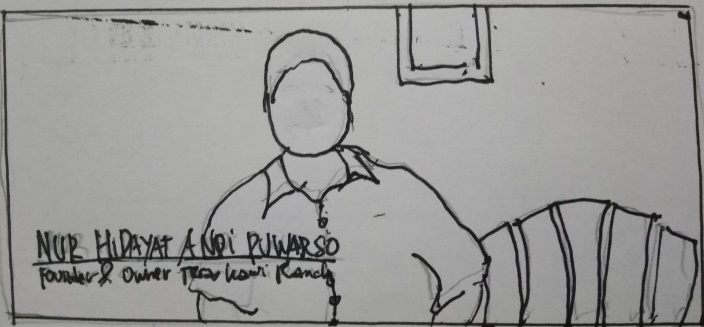 NUR HIDAYAT ANDI PUWARSO
Founder & Owner Kawi Ranch